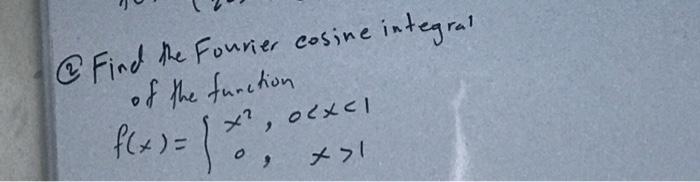 ② Find the Fourier cosine integral
of the function
f(x) = { x², 0<x<1
0, x>1